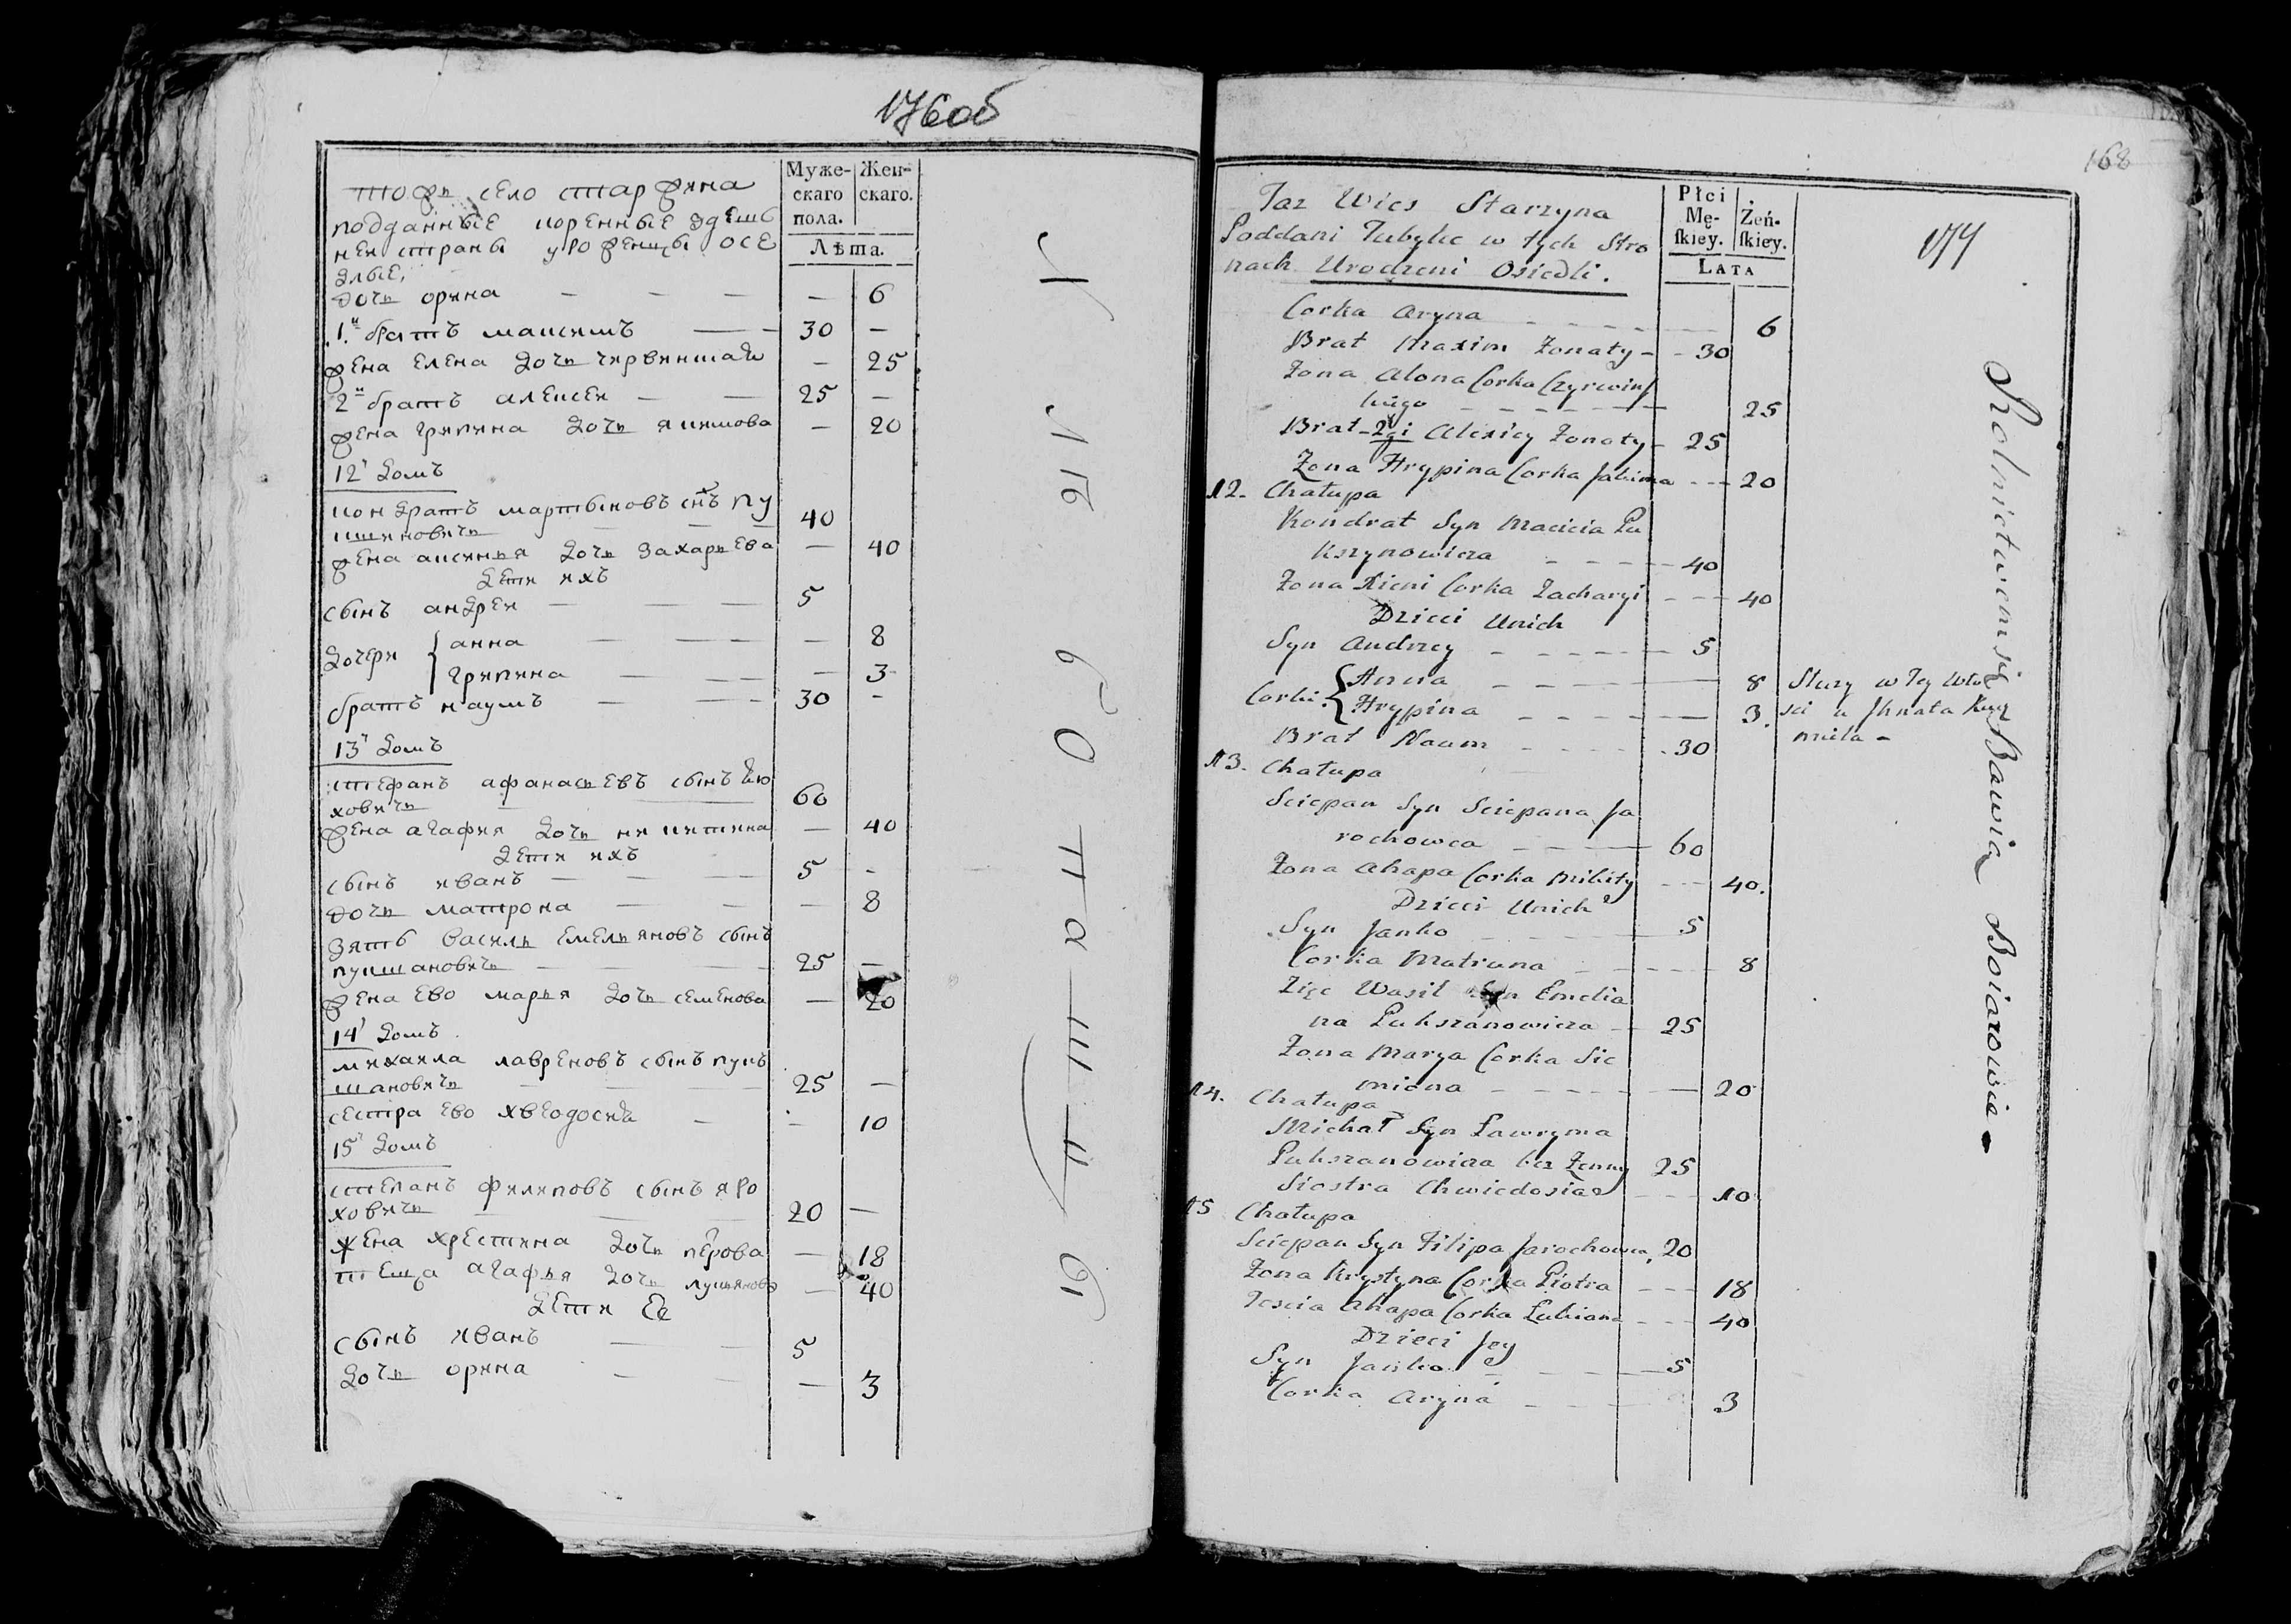 176об
Муже-
скаго
пола.
Жен-
скаго.
Лѣта.
тожь село старжина
подданные коренные здешь
неи страны уроженцы осе
длые,
дочь орина — — — — 6
1й братъ максимъ — 30 —
жена елена дочь — 25
2й братъ алексеи — — 25 —
жена грипина дочь якимова — 20
12 домъ
кондратъ мартыновъ снъ пу
кшиновичь — — — 40
жена аксинья дочь захарьева — 40
дети ихъ
сынъ андреи — — — 5
дочери { анна — — — 8
грипина — — — 3
братъ наумъ — — 30 -
13 домъ
стефанъ афанасьевъ сынъ
ховичь — — 60
жена агафия дочь никитина — 40
дети ихъ
сынъ иванъ — — — 5 -
дочь матрона — — — 8
зять василь емельяновъ сынъ
пукшановичь — — 25 —
жена ево марья дочь семенова — 20
14 домъ
михаила лавреновъ сынъ пукъ
шановичь — — 25 —
сестра ево хведоска — - 10
15 домъ
степанъ филиповъ сынъ яро
ховичь — — — 20 —
жена христина дочь перова — 18
теща агафья дочь лукьянова — 40
дети ее
сынъ иванъ — — 5
дочь орина — — — 3
168
174
Płci
Mę-
ſkiey.
Żeń-
ſkiey.
LATA
Taz Wies Starzyna
Poddani Tubylce w tych Stro
nach Urodzeni Osiedli.
Corka Aryna - - - - 6
Brat Maxim Zonaty - - 30
Zona Alona Corka Czyrwinſ
kiego - - - - - 25
Brat 2gi Alexiey Zonaty - 25
Zona Hrypina Corka Jakima - - - 20
12. Chałupa
Kondrat Syn Macieia Pu
kszynowicza - - - - 40
Zona Xieni Corka Zacharyi - - - 40
Dzieci Unich
Syn Andrzey - - - - 5
Corki { Anna - - - - 8
Hrypina - - - - 3.
Słuzy w Tey Wło
sci u Jhnata Kuz
miela -
Brat Naum - - - - 30
13. Chałupa
Sciepan Syn Sciepana Ja
rochowca - - - - 60
Zona Ahapa Corka Mikity - - - 40.
Dzieci Unich
Syn Janko - - - - 5
Corka Matruna - - - - 8
Zięc Wasil Syn Emelia
na Pukszanowicza - 25
Zona Marya Corka Sie
miona - - - - 20
14. Chałupa
Michał Syn Ławryma
Pukszanowicza bez Zenny 25
Siostra Chwiedosia - - - 10
15 Chałupa
Sciepan Syn Filipa Jarochowca 20
Zona Krystyna Corka Piotra - - - 18
Tescia Ahapa Corka Lukiana - - - 40
Dzieci Jey
Syn Janko - - - - 5
Corka Aryna - - - - 3
Rolnictwem się Bawią Boiarowie